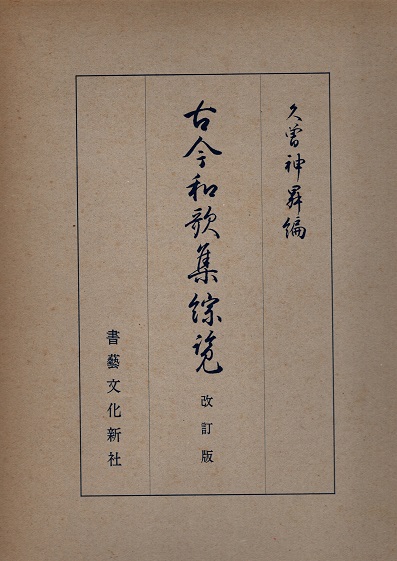 久曾神昇編
古今和歌集綜覧
改訂版
書藝文化新社